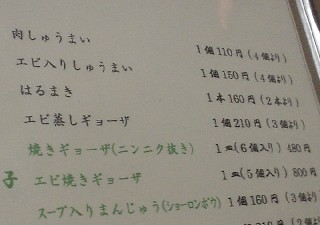 肉しゅうまい 1個110円(4個より)
エビ入りしゅうまい 1個150円(4個より)
はるまき 1本160円(2本より)
エビ蒸しギョーザ 1個210円(3個より)
焼きギョーザ(ニンニク抜き) 1皿(6個入り)480円
子 エビ焼きギョーザ 1皿(5個入り)800円
スープ入りまんじゅう(ショーロンポウ) 1個160円(3個より)